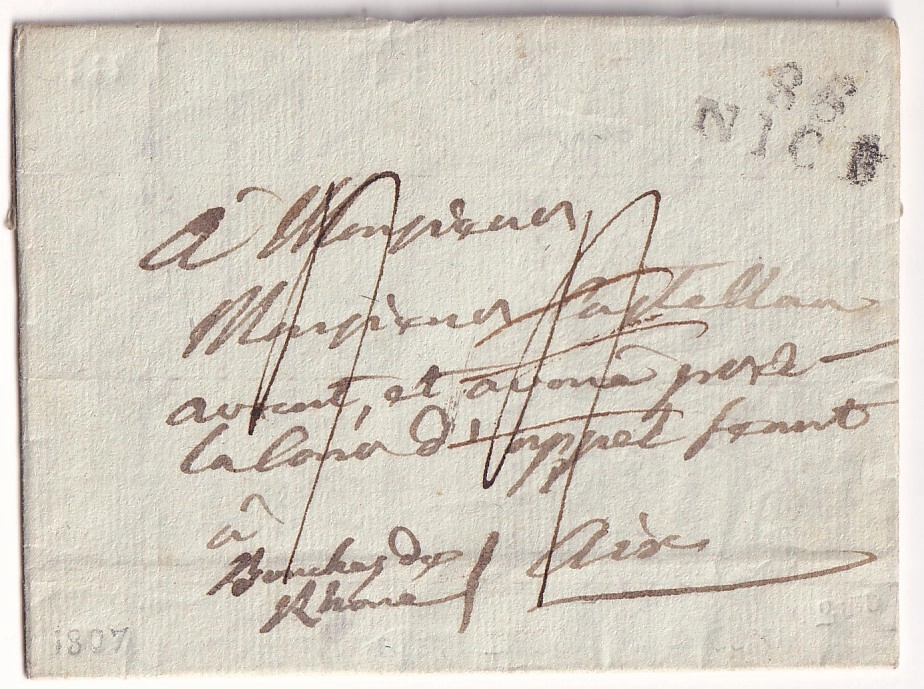 85
NICE
à Monsieur
Monsieur Castellan
avocat, et avoué pres
la Cour d'appel séant
à Aix
Bouches du
Rhone
1807